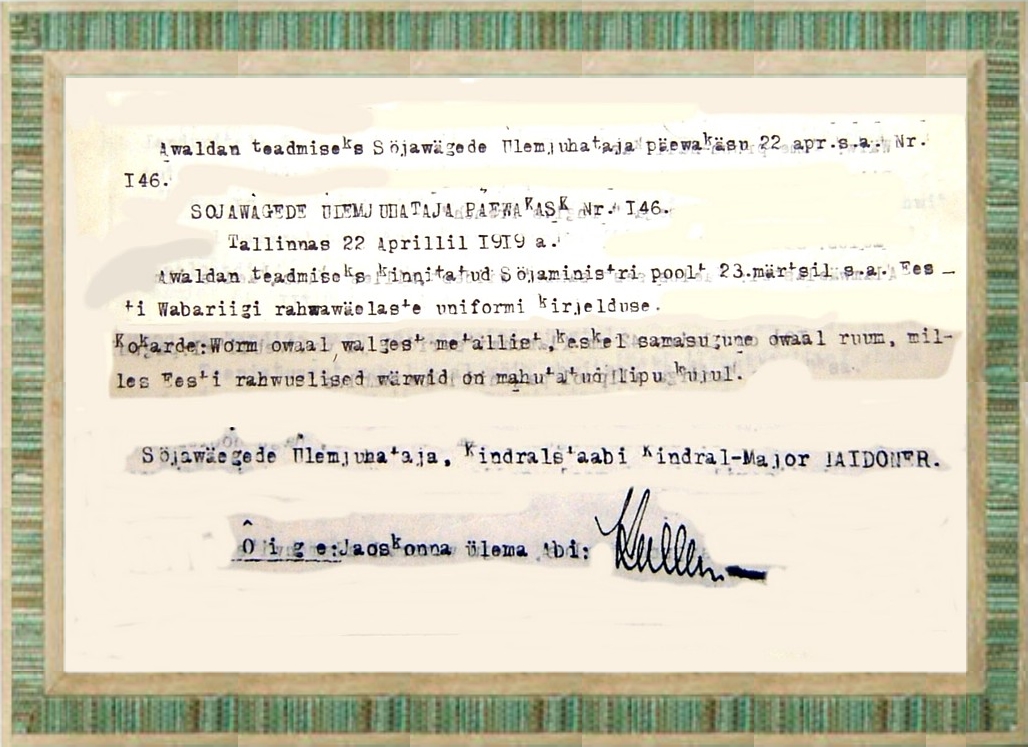 Awaldan teadmiseks Söjawägede Ülemjuhataja päewakäsu 22 apr.s.a. Nr.
I46.
SOJAWÄGEDE ÜLEMJUHATAJA PÄEWAKASK Nr. I46.
Tallinnas 22 Aprillil I9I9 a.
Awaldan teadmiseks kinnitatud Söjaministri poolt 23.märtsil s.a. Ees-
ti Wabariigi rahwawäelaste uniformi kirjelduse.
Kokarde:Worm owaal walgest metallist, keskel samasugune owaal ruum, mil-
les Eesti rahwuslised wärwid on mahutatud lipu kujul.
Söjawäegede Ülemjuhataja, Kindralstaabi Kindral-Major LAIDONER.
Ô i g e:Jaoskonna ülema Abi: